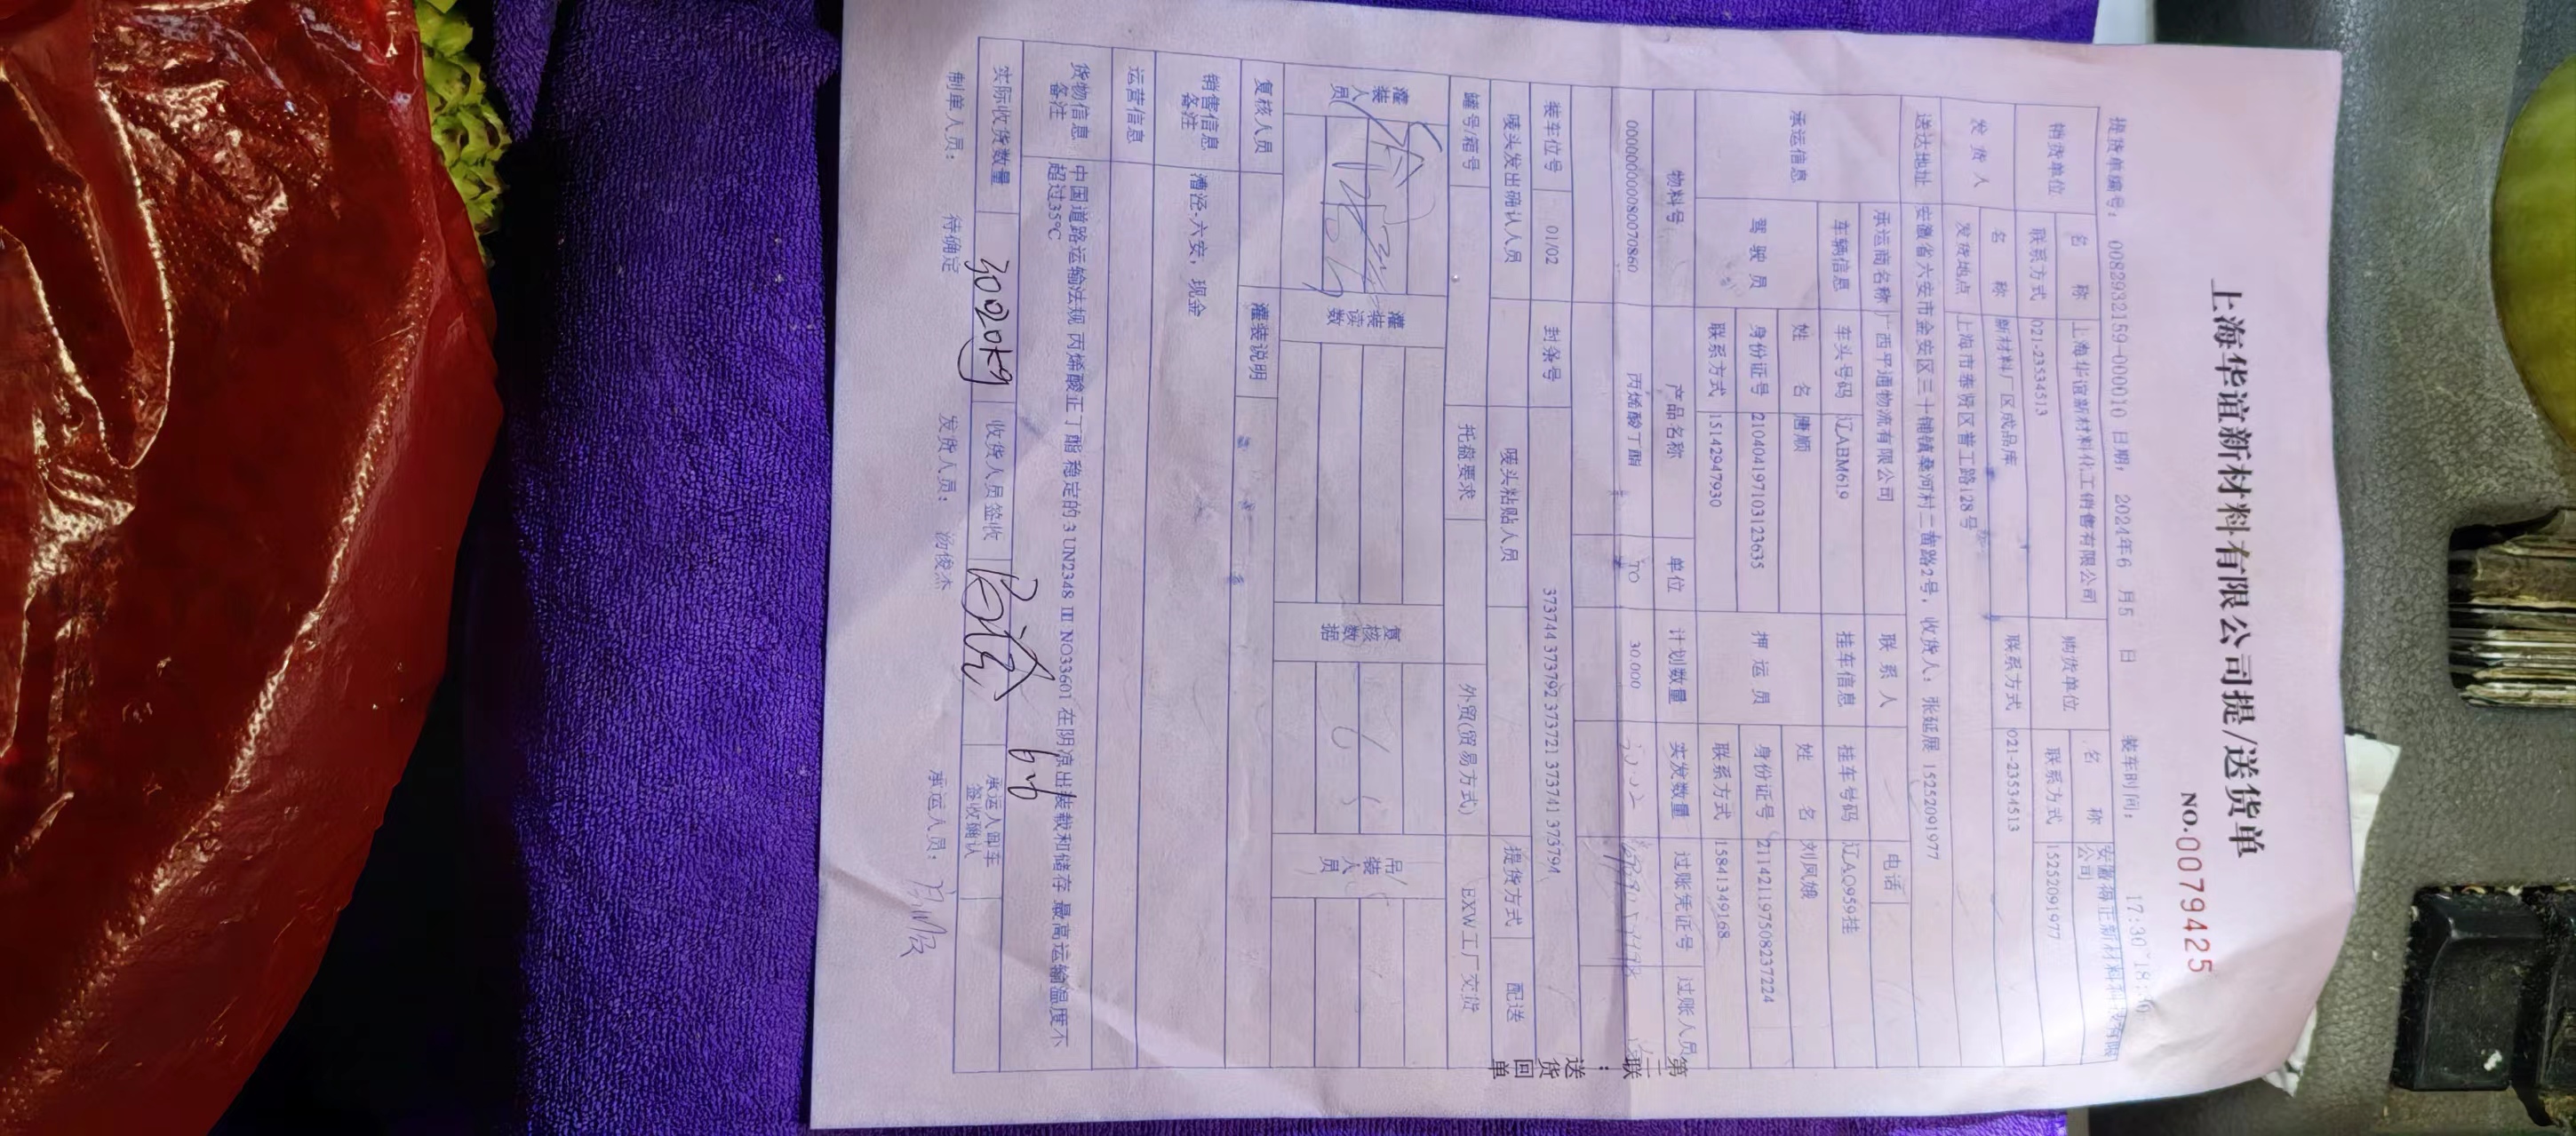 上海华谊新材料有限公司提/送货单
NO.0079425
提货单编号: 0082932159-000010 日期: 2024年6 月5 日 装车时间: 17:30
销货单位 名 称 上海华谊新材料化工销售有限公司 购货单位 名 称 安徽得正新材料科技有限公司
联系方式 021-23534513 联系方式 15252091977
发 货 人 名 称 新材料厂区成品库 联系方式 021-23534513
发货地点 上海市奉贤区普工路128号
送达地址 安徽省六安市金安区三十铺镇桑河村二蓄路2号, 收货人: 张延展 15252091977
承运信息 承运商名称 广西平通物流有限公司 联 系 人 电话
车辆信息 车头号码 辽ABM619 挂车信息 挂车号码 辽AQ959挂
驾 驶 员 姓 名 唐顺 押 运 员 姓 名 刘凤娥
身份证号 210404197103123635 身份证号 211421197508237224
联系方式 15142947930 联系方式 15841349168
物料号 产品名称 单位 计划数量 实发数量 过账凭证号 过账人员
000000000080070860 丙烯酸丁酯 TO 30.000
装车位号 01/02 封条号 373744 373792 373721 373741 373794
唛头发出确认人员 唛头粘贴人员 提货方式 配送
罐号/箱号 托盘要求 外贸(贸易方式) EXW工厂交货
灌装人员 灌装读数 复核数据 吊装人员
复核人员 灌装说明
销售信息备注 漕泾-六安, 现金
运营信息
货物信息备注 中国道路运输法规 丙烯酸正丁酯 稳定的 3 UN2348 III NO33601 在阴凉出装载和储存 最高运输温度不
超过35℃
实际收货数量 30020kg 收货人员签收 6.6 承运人卸车签收确认
制单人员: 待确定 发货人员: 汤俊杰 承运人员:
第二联:送货回单